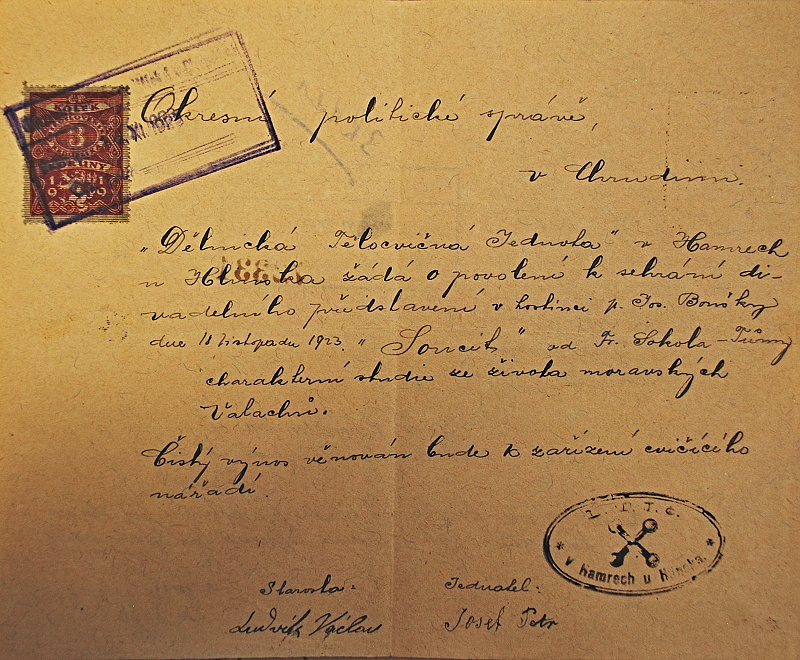 Okresní politické správě,
v Chrudimi.
"Dělnická Tělocvičná Jednota" v Hamrech
u Hlinska žádá o povolení k sehrání di-
vadelního představení v hostinci p. Jos. Boušky
dne 18 listopadu 1923. "Soucit" od Fr. Sokola-Tůmy
charakterní studie ze života moravských
Valachů.
Čistý výnos věnován bude k zařízení cvičícího
nářadí.
KOLEK
3
KORUNY
1919
D.T.J.Č.
* v Hamrech u Hlinska. *
Starosta:
Ludvík Václav
Jednatel:
Josef Petr